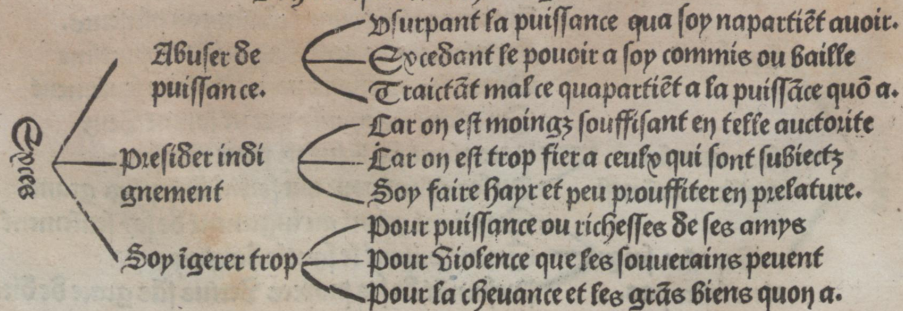 Exces
Abuser de
puissance.
Usurpant la puissance qua soy napartiẽt auoir.
Excedant le pouoir a soy commis ou baille
Traictãt mal ce quapartiẽt a la puissãce quõ a.
Presider indi
gnement
Car on est moingz souffisant en telle auctorite
Car on est trop fier a ceulx qui sont subiectz
Soy faire hayr et peu prouffiter en prelature.
Soy ĩgerer trop
Pour puissance ou richesses de ses amys
Pour violence que les souuerains peuent
Pour la cheuance et les grãs biens quon a.